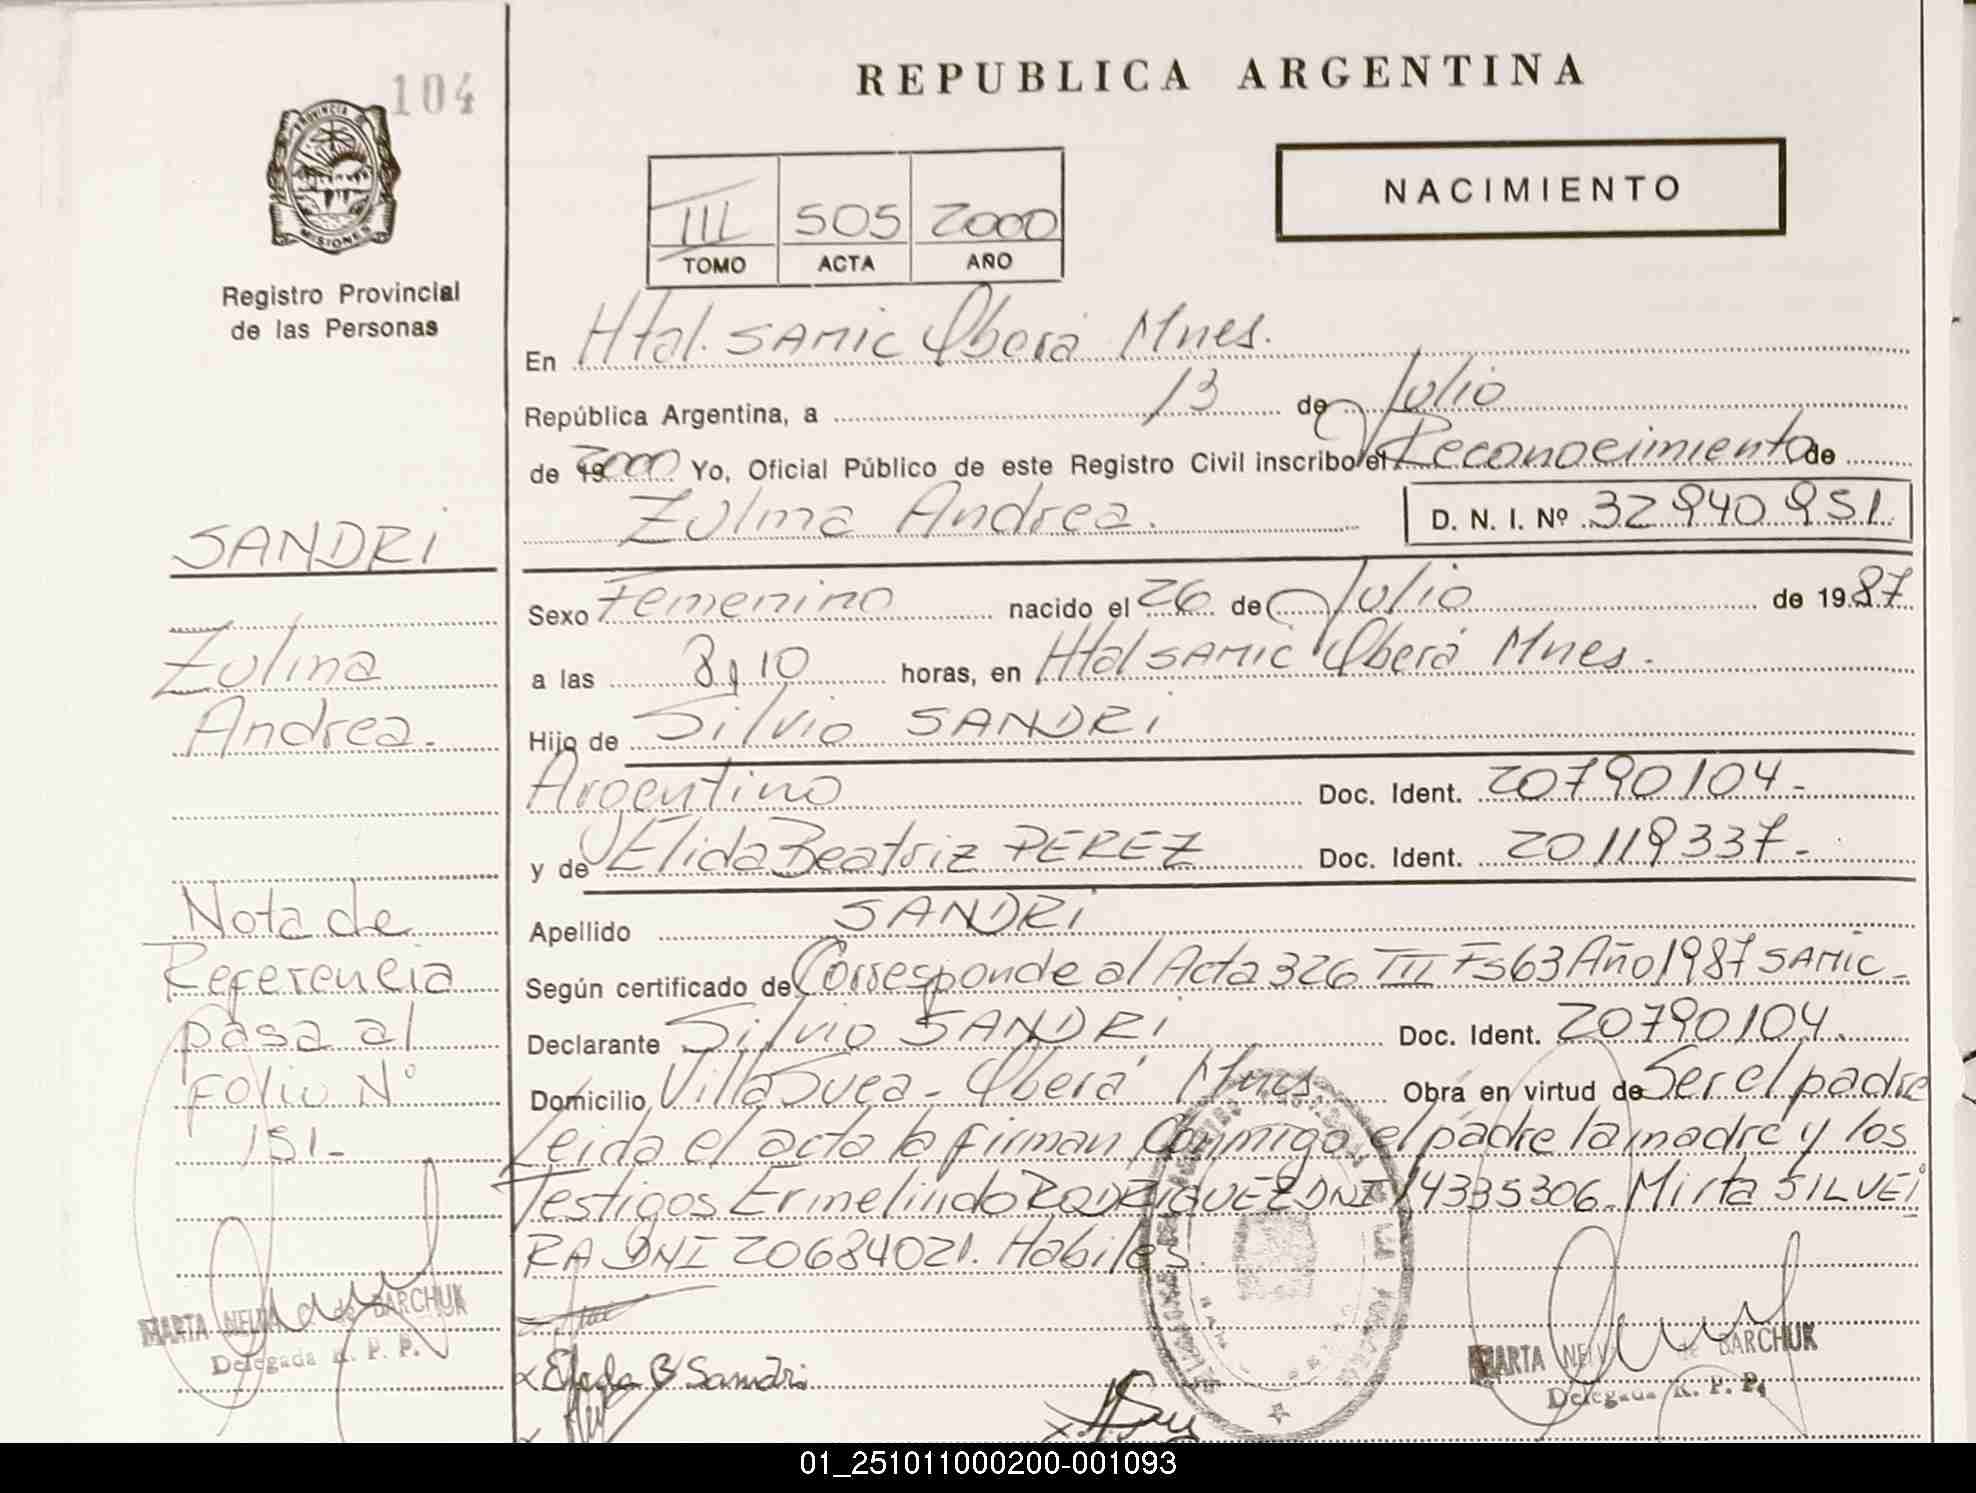 104
PROVINCIA DE
MISIONES
Registro Provincial
de las Personas
REPUBLICA ARGENTINA
NACIMIENTO
III 505 2000
TOMO ACTA AÑO
En Htal. SAMIC Oberá Mnes.
República Argentina, a 13 de Julio
de 19 2000 Yo, Oficial Público de este Registro Civil inscribo el Reconocimiento de
Zulma Andrea. D. N. I. Nº 32940951
SANDRI
Zulma
Andrea.
Sexo Femenino nacido el 26 de Julio de 1987
a las 8 y 10 horas, en Htal SAMIC Oberá Mnes.
Hijo de Silvio SANDRI
Argentino Doc. Ident. 20790104-
y de Elida Beatriz PEREZ Doc. Ident. 20119337-
Apellido SANDRI
Según certificado de Corresponde al Acta 326 III Fs 63 Año 1987 SAMIC-
Declarante Silvio SANDRI Doc. Ident. 20790104.
Domicilio Villa Suea - Oberá Mnes Obra en virtud de Ser el padre
Leida el acta la firman Conmigo el padre la madre y los
Testigos Ermelindo RODRIGUEZ DNI 14335306. Mirta SILVEI
RA DNI 20684021. Habiles.
Nota de
Referencia
pasa al
Folio Nº
151-
MARTA NELVA de BARCHUK
Delegada R. P. P.
x Elida B Sandri
MARTA NELVA de BARCHUK
Delegada R. P. P.
01_251011000200-001093